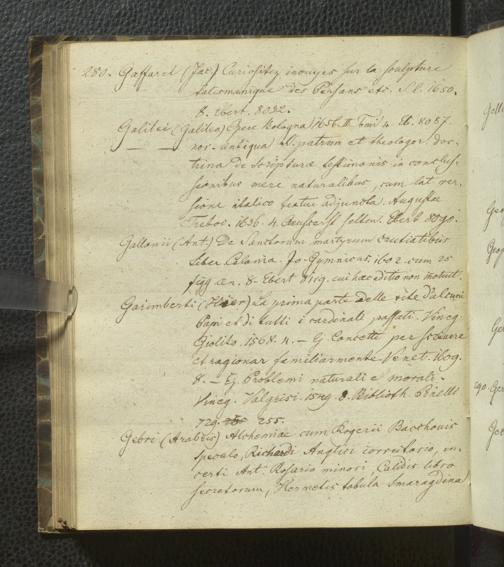 280. Gaffarel (Jac) Curiositez inouyes sur la sculpture
talismanique des Persans etc. S. l. 1650.
8. Ebert. 8032.
Galilei (Galileo) Opere Bologna 1656. II Tomi 4. Eb. 8087.
— — nov. antiqua S. patrum et theologor. doc-
trina de Scripturae testimoniis in conclus-
sionibus mere naturalibus, cum lat ver-
sione italico textui adjuncta. Augustae
Treboc. 1636. 4. Ebert 8090.
Gallonii (Ant.) De Sanctorum martyrum cruciatibus
liber Colonia. Jo. Gymnicus. 1602 cum 25
figg aen. 8. Ebert cui haec editio non notuit.
Garimberti (Hier) La prima parte delle vite d'alcuni
Papi et di tutti i cardinali passati. Vineg
Giolito. 1568. 4. — Ej Concetti per scrivere
et ragionar familiarmente Venet. 1609.
8. — Ej. Problemi naturali e morali.
Vineg. Valgrisi. 1549. 8. Biblioth. Pinelli
729. 255.
Gebri (Arabis) Alchemiae cum Rogerii Bacchonis
speculo, Richardi Anglici correctorio, in-
certi Aut. Rosario minori, Calidis libro
secretorum, Hermetis tabula Smaragdina
290.